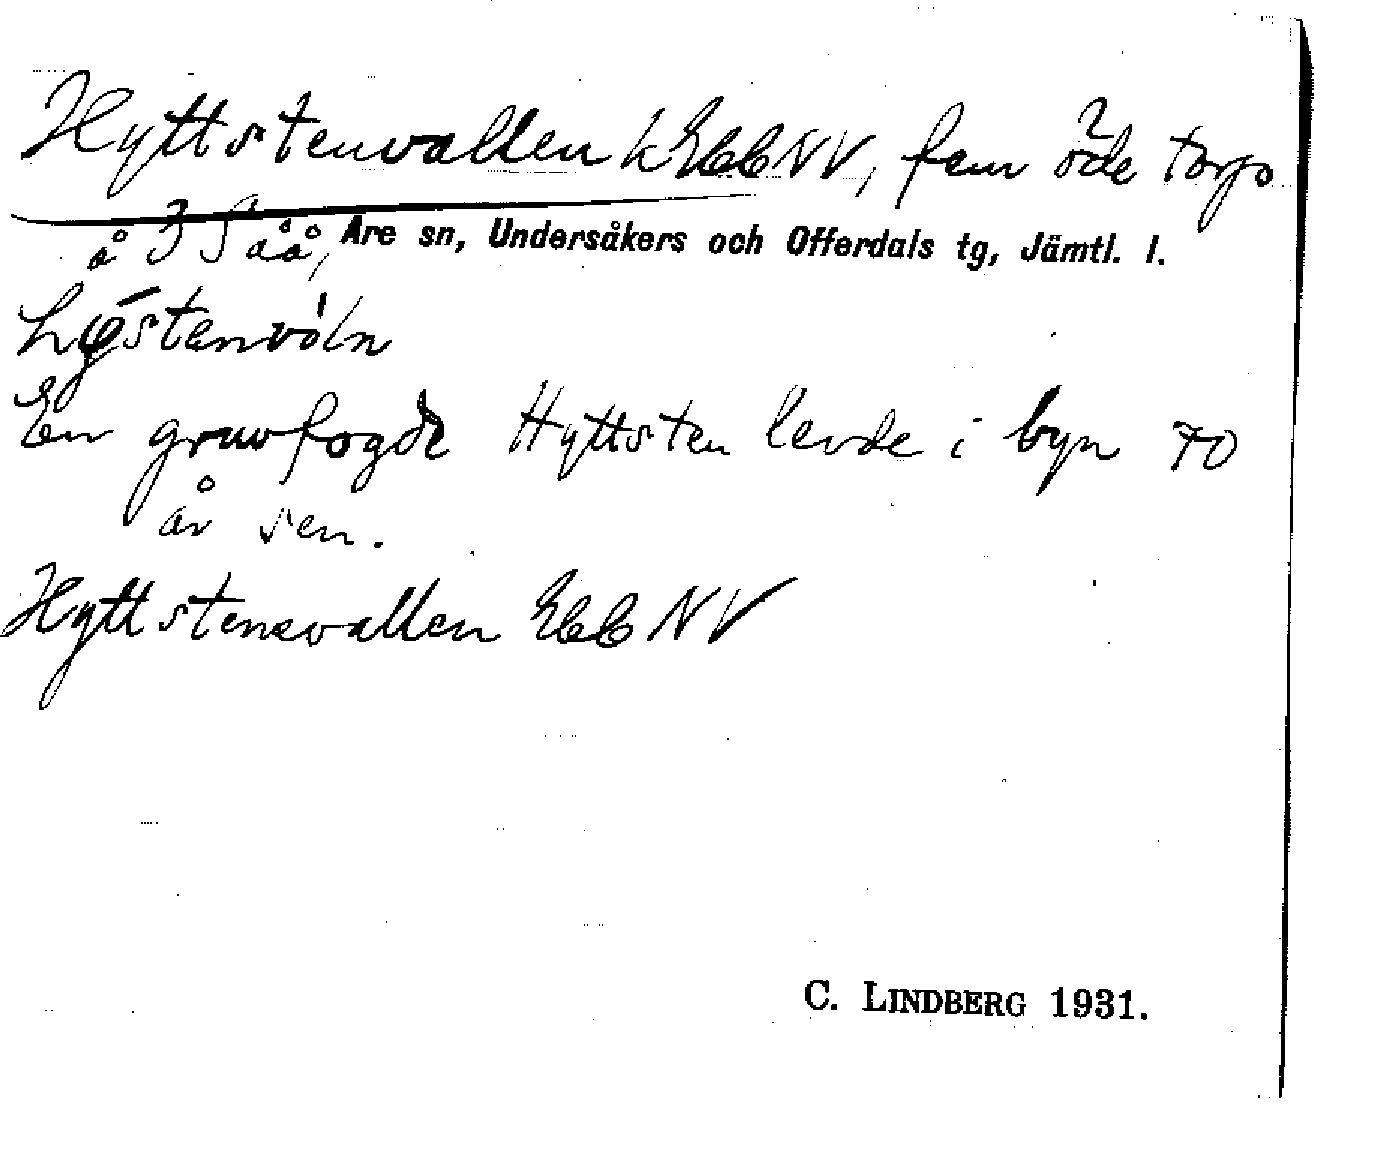 Hyttstenvallen k Ebb NV, fem öde torp
å 3 Såå, Åre sn, Undersåkers och Offerdals tg, Jämtl. l.
En gruvfogde Hyttsten levde i byn 70
år sen.
Hyttstensvallen Ebb NV
C. LINDBERG 1931.